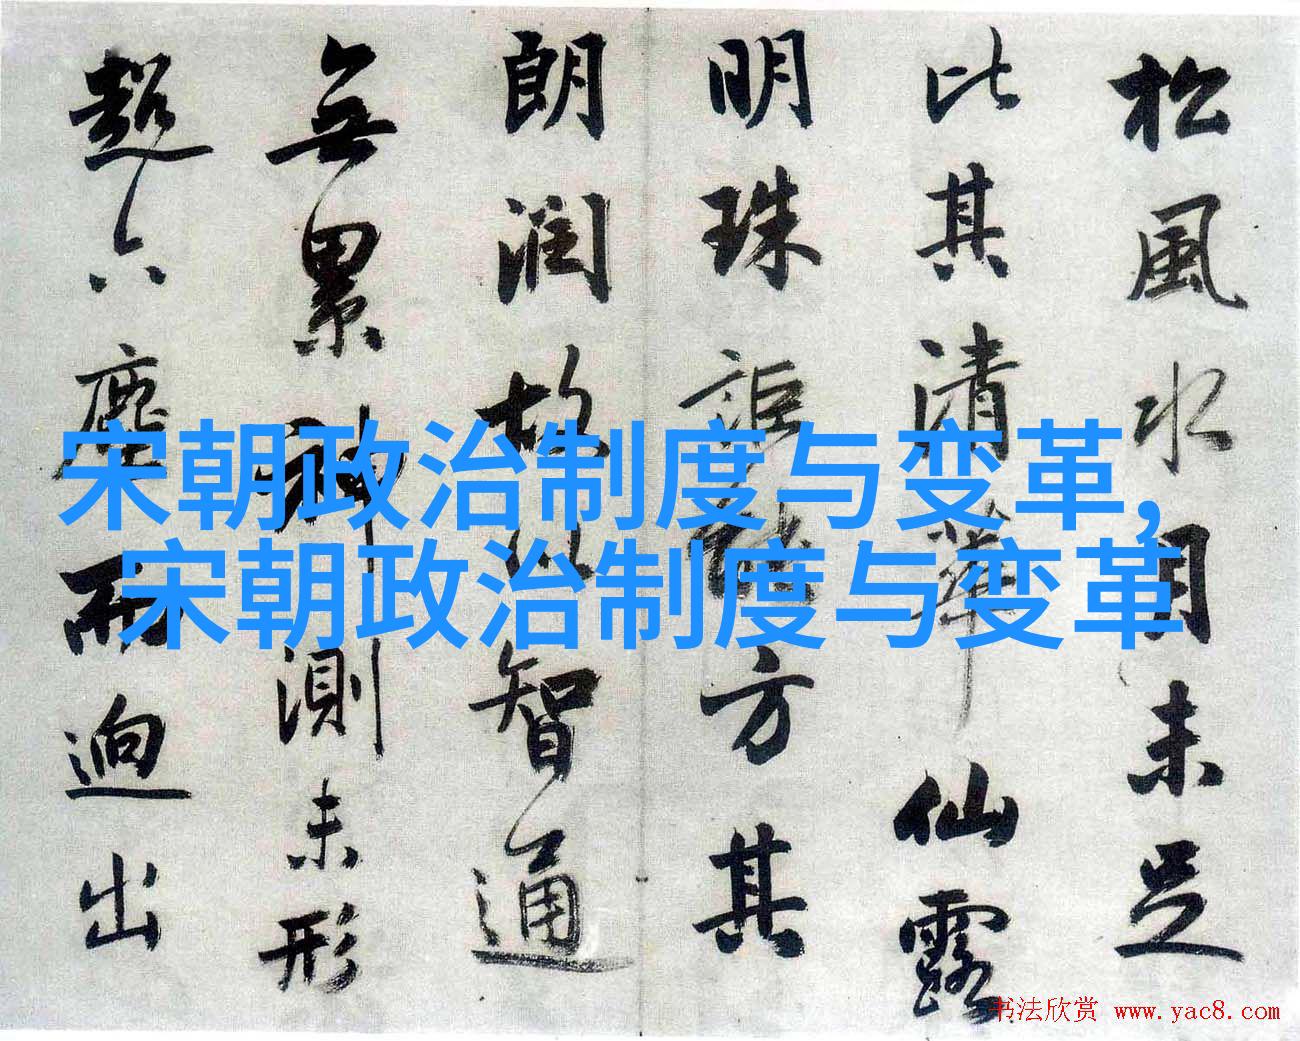 松風水月未足
比其清華仙露
明珠詎能方其
朗潤故以智通
無累神測未形
超六塵而迥出
宋朝政治制度与变革,
宋朝政治制度与变革
书法欣赏 www.yac8.com